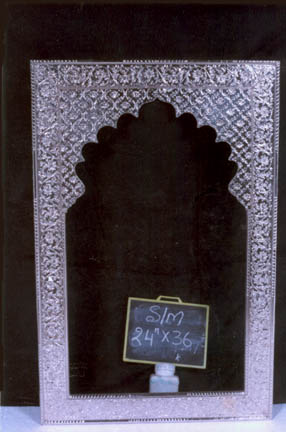 S/M
24"x36"
k